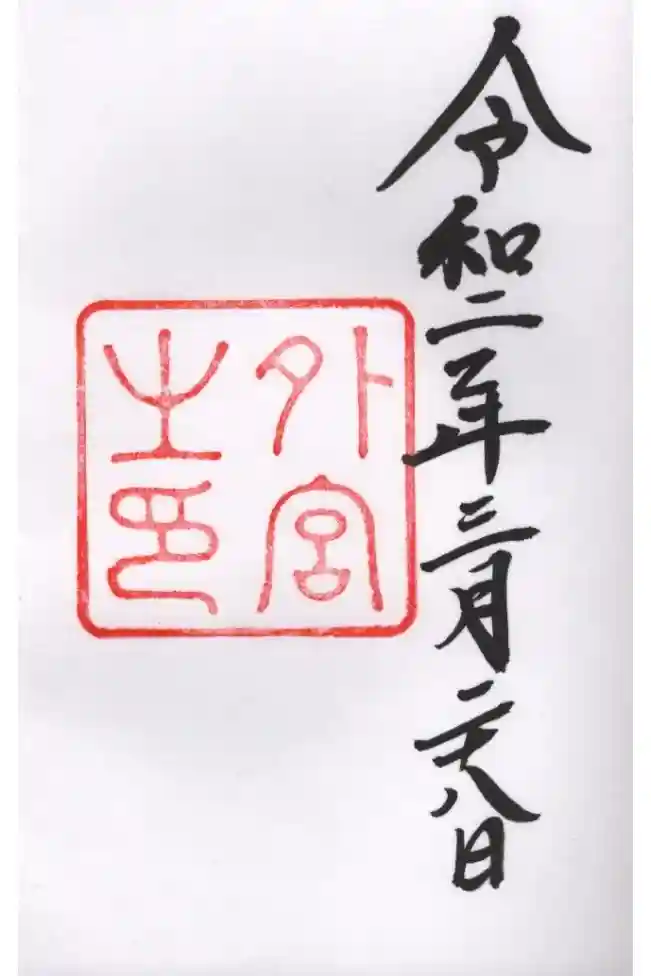 令和二年三月二十八日
外宮
之印